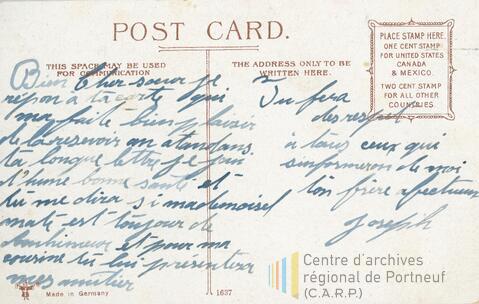 POST CARD.
THIS SPACE MAY BE USED
FOR COMMUNICATION
THE ADDRESS ONLY TO BE
WRITTEN HERE.
PLACE STAMP HERE.
ONE CENT STAMP
FOR UNITED STATES
CANADA
& MEXICO.
TWO CENT STAMP
FOR ALL OTHER
COUNTRIES.
Bien Cher soeur je
répon a ta carte qui
ma faite bien plaisir
de la resevoir an atandans
ta longue lettre je suis
d'hune bonne santé et
tu me dira si madmoisel
est toujour de
et pour ma
cousine tu lui présentera
mes amitier
Tu fera
des respet
à tous ceux qui
sinformeron de moi
ton frère afectueux
Joseph
Made in Germany
1637
Centre d'archives
régional de Portneuf
(C.A.R.P.)